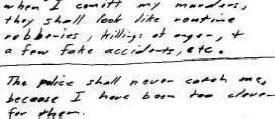 when I comitt my murders,
they shall look like routine
robberies, killings of anger, +
a few fake accidents, etc.
The police shall never catch me,
because I have been too clever
for them.